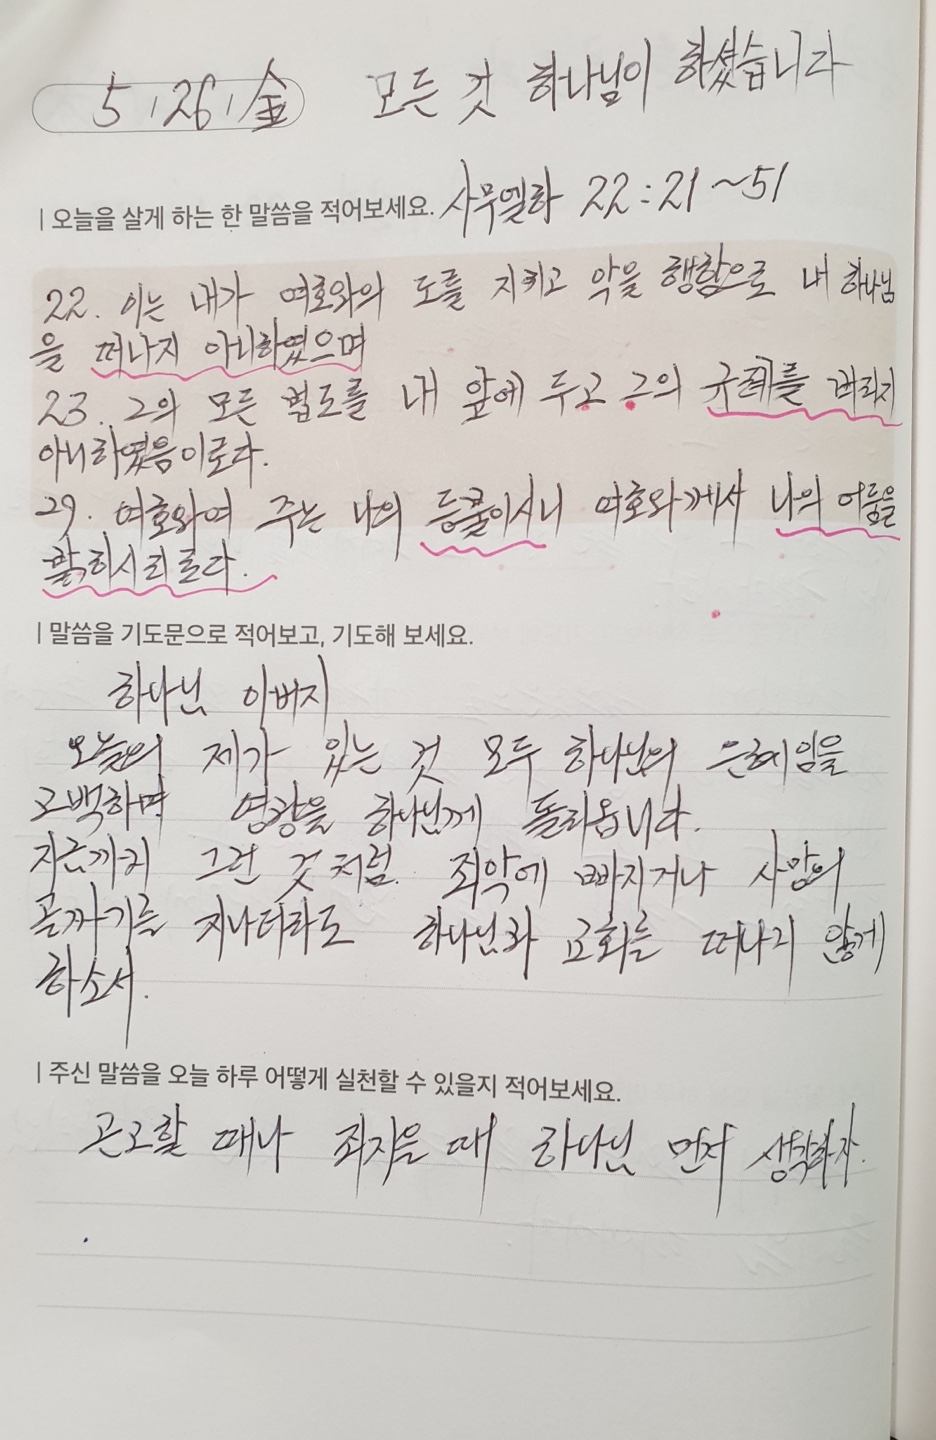 5 / 26 / 金 모든 것 하나님이 하셨습니다
| 오늘을 살게 하는 한 말씀을 적어보세요. 사무엘하 22:21~51
22. 이는 내가 여호와의 도를 지키고 악을 행함으로 내 하나님
을 떠나지 아니하였으며
23. 그의 모든 법도를 내 앞에 두고 그의 규례를 버리지
아니하였음이로다.
29. 여호와여 주는 나의 등불이시니 여호와께서 나의 어둠을
밝히시리로다.
| 말씀을 기도문으로 적어보고, 기도해 보세요.
하나님 아버지
오늘의 제가 있는 것 모두 하나님의 은혜임을
고백하며 영광을 하나님께 돌리옵니다.
지금까지 그런 것처럼. 죄악에 빠지거나 사망의
골짜기를 지나더라도 하나님과 교회를 떠나지 않게
하소서.
| 주신 말씀을 오늘 하루 어떻게 실천할 수 있을지 적어보세요.
곤고할 때나 죄지을 때 하나님 먼저 생각하자.